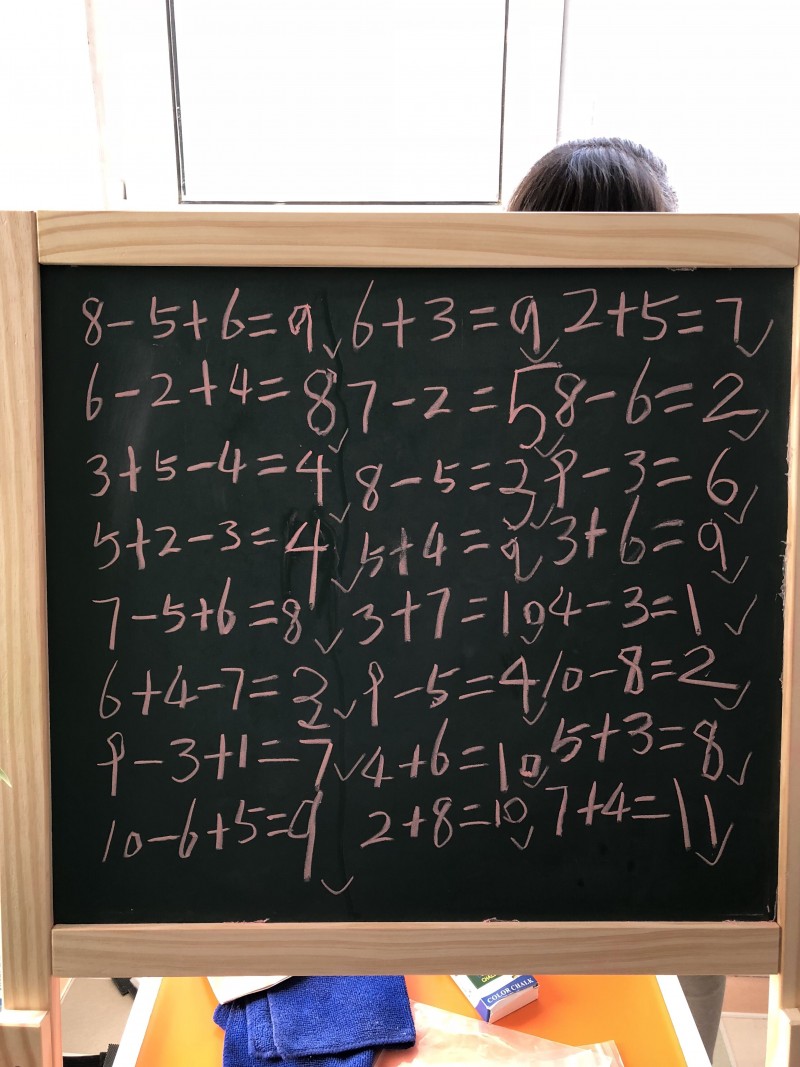 8-5+6=9 6+3=9 2+5=7
6-2+4=8 7-2=5 8-6=2
3+5-4=4 8-5=3 9-3=6
5+2-3=4 5+4=9 3+6=9
7-5+6=8 3+7=10 4-3=1
6+4-7=3 9-5=4 10-8=2
9-3+1=7 4+6=10 5+3=8
10-6+5=9 2+8=10 7+4=11
COLOR CHALK